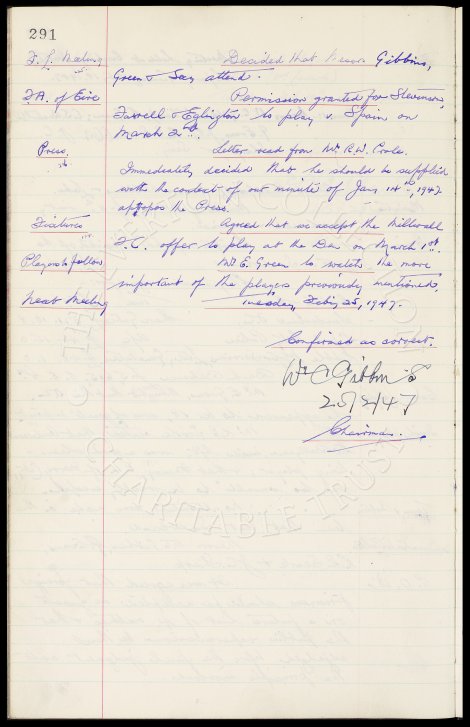 291
F. L. Meeting Decided that Messrs Gibbins,
Green & Say attend.
F.A. of Eire Permission granted for Stevenson,
Farrell & Eglington to play v. Spain on
March 2nd.
Press. Letter read from Mr. R.W.
Immediately decided that he should be supplied
with the context of our minute of Jan 14th, 1947
apropos the Press.
Fixtures Agreed that we accept the Millwall
F.C. offer to play at the Den on March 1st.
Players to follow Mr E. Green to watch the more
important of the players previously mentioned.
Next Meeting Tuesday, Feb'y 25, 1947.
Confirmed as correct.
Wm C Gibbins
25/2/47
Chairman.
CHARITABLE TRUST